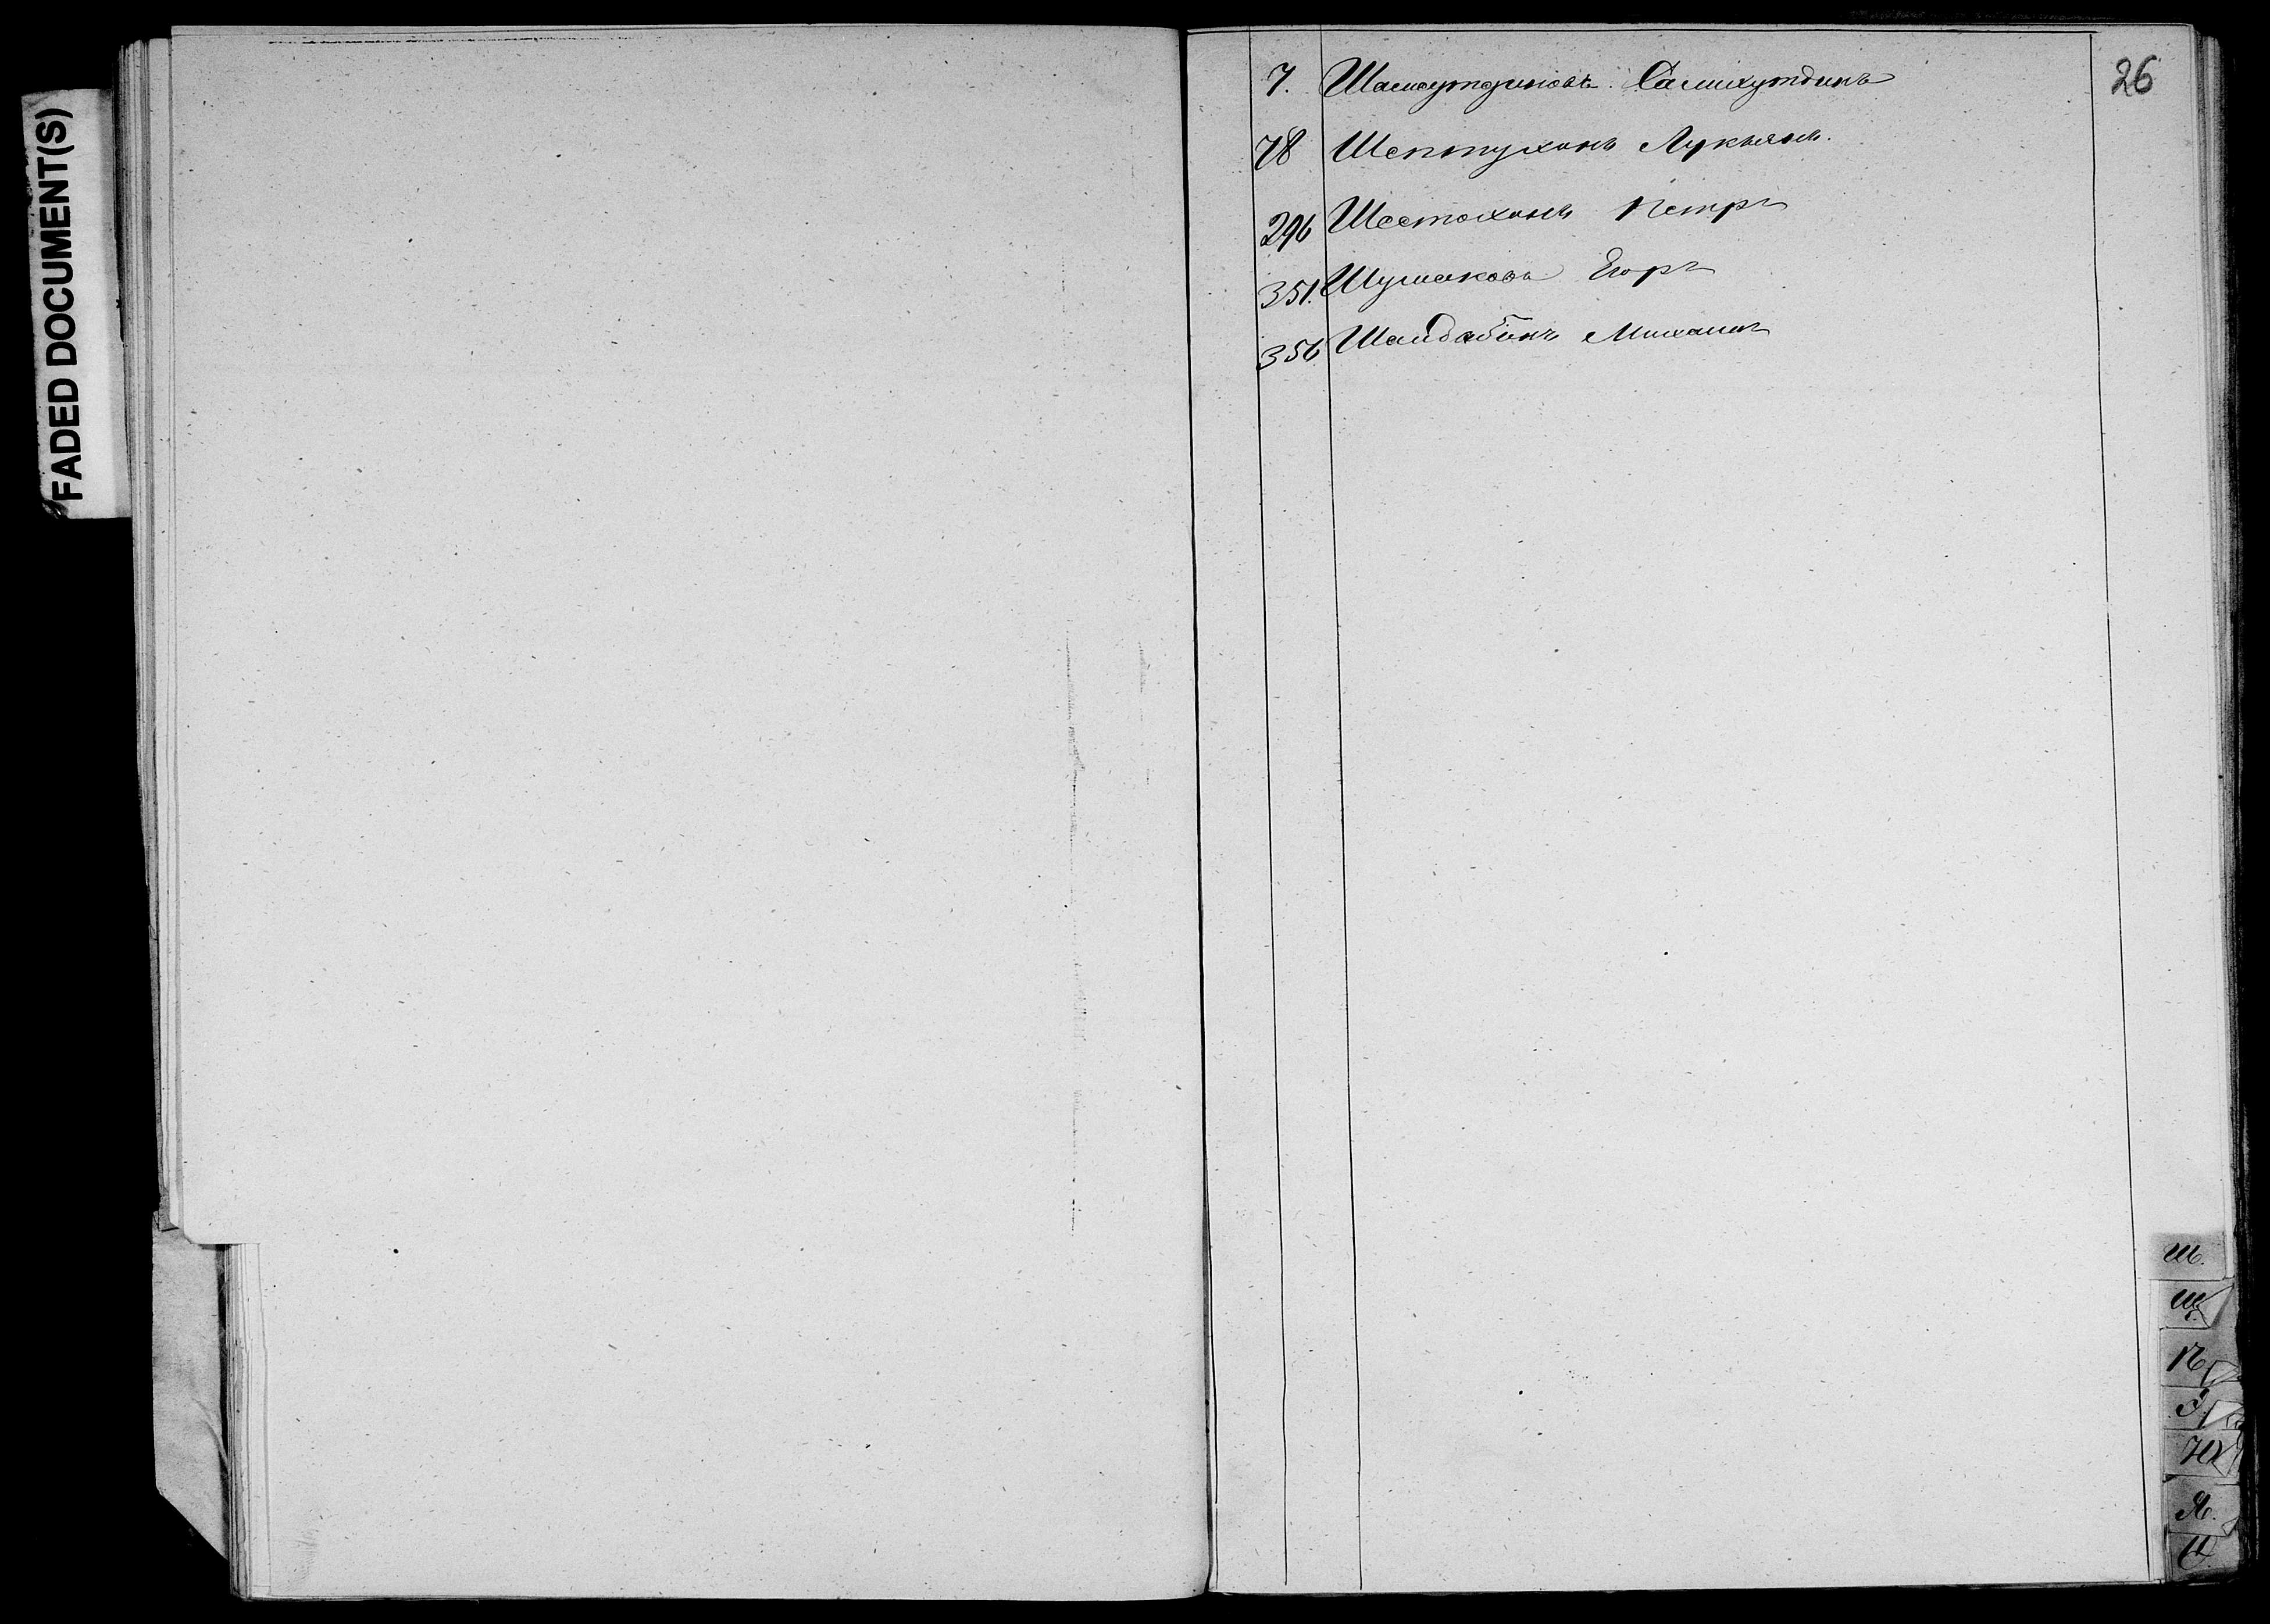 FADED DOCUMENT(S)
26
7. Шамсутдиновъ Самихутдинъ
78 Шептухинъ Лукьянъ.
296 Шестохинъ Петръ
351. Шушаковъ Егоръ
356 Шандабинъ Михаилъ
Ш.
Щ.
Ѣ
Э.
Ю
Я.